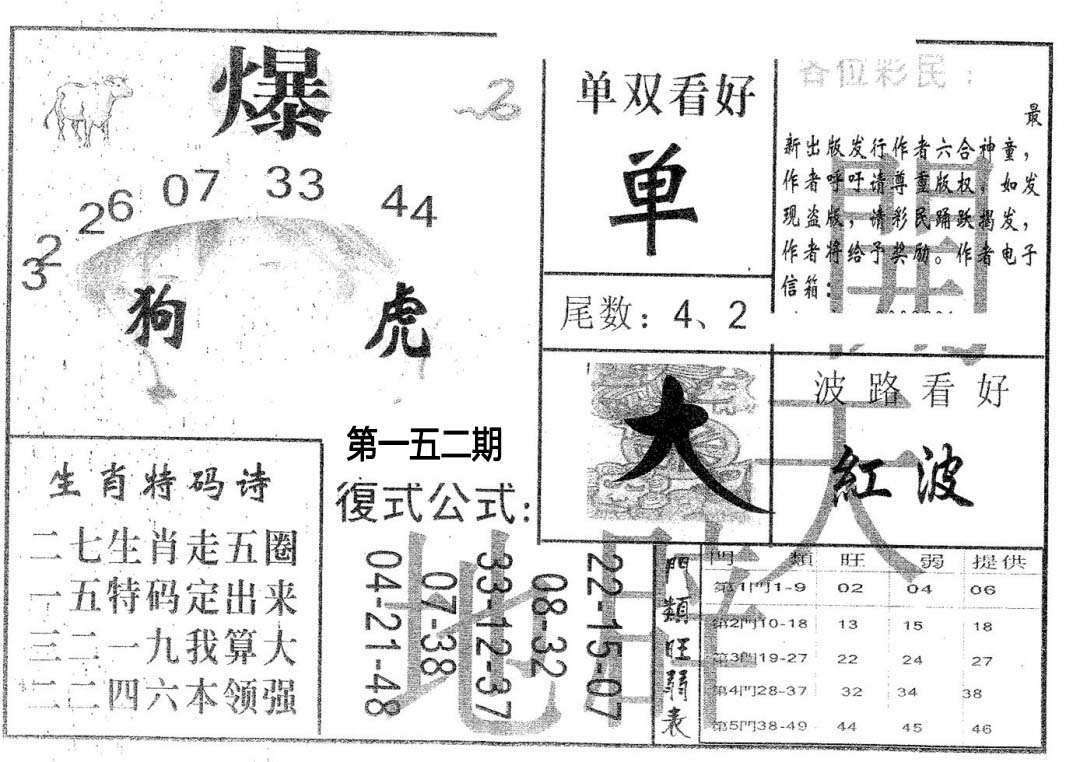 爆
32
26
07
33
44
狗
虎
单双看好
单
尾数：4、2
各位彩民：
最
新出版发行作者六合神童，
作者呼吁请尊重版权。如发
现盗版，请彩民踊跃揭发，
作者将给予奖励。作者电子
信箱：
大
波路看好
紅波
生肖特码诗
二七生肖走五圈
一五特码定出来
三二一九我算大
二二四六本领强
第一五二期
復式公式：
22-15-07
08-32
33-12-37
07-38
04-21-48
門類旺弱表
門 類 旺 弱 提供
第1門1-9 02 04 06
第2門10-18 13 15 18
第3門19-27 22 24 27
第4門28-37 32 34 38
第5門38-49 44 45 46